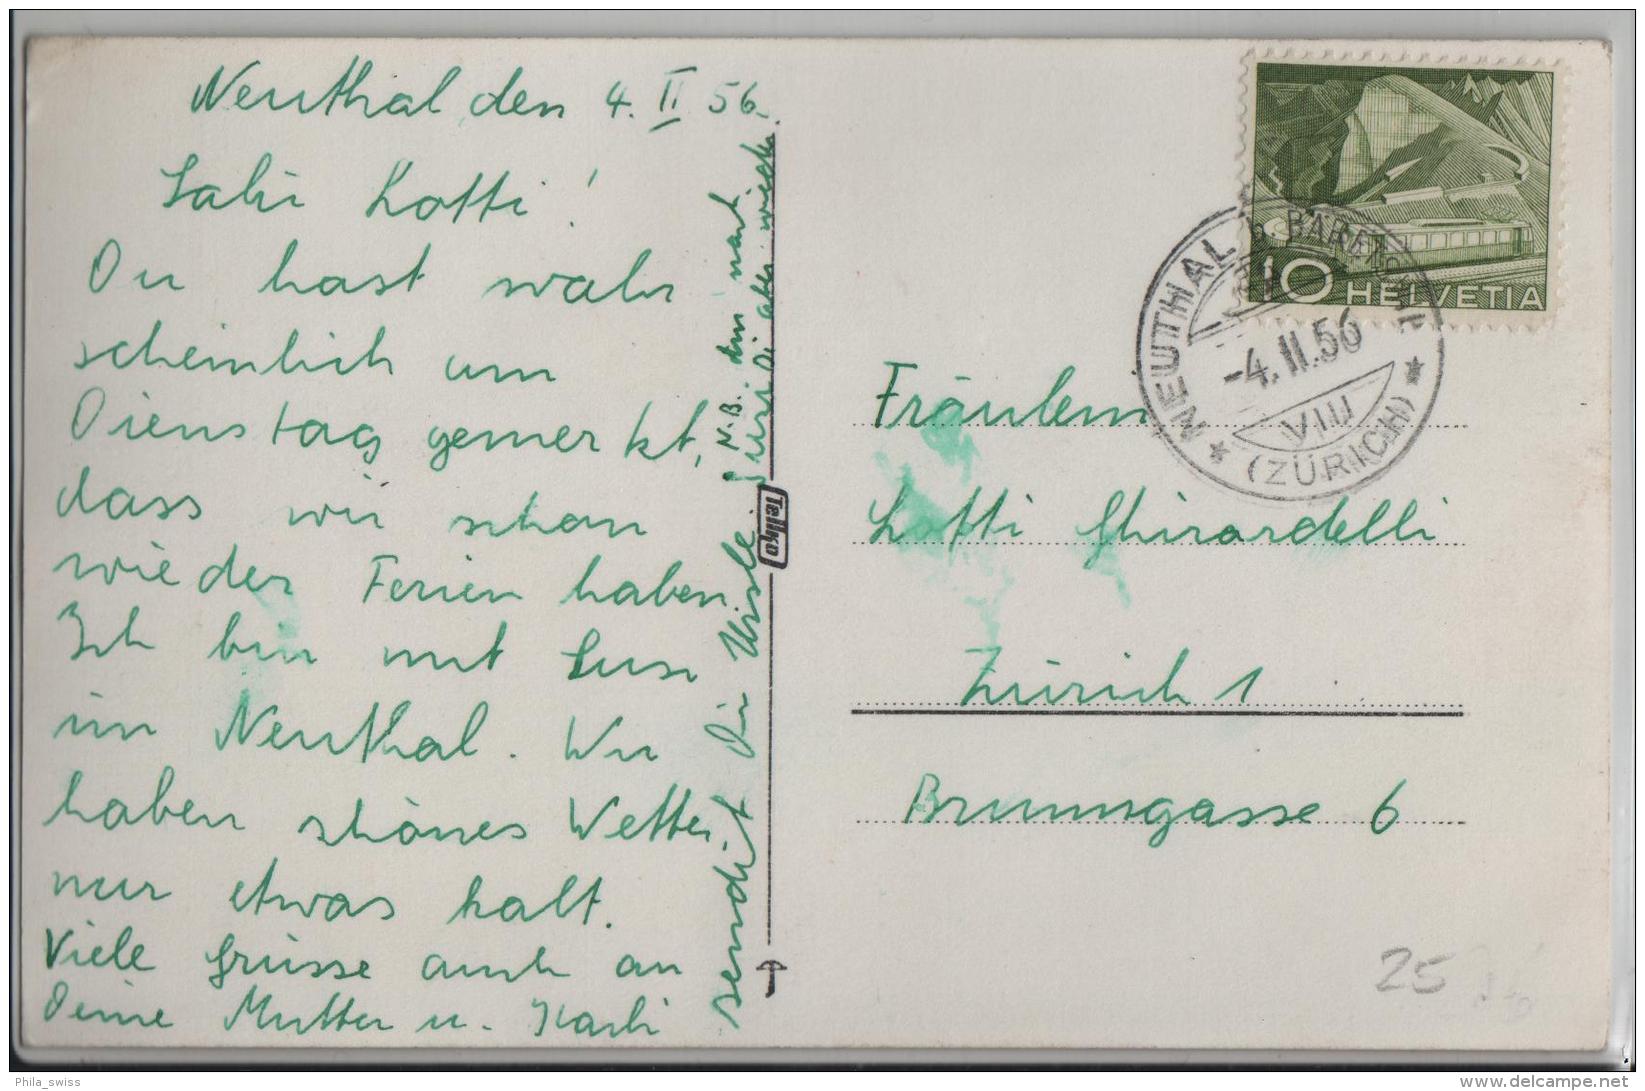 Neuthal, den 4. II 56.
Sali Lotti!
Du hast wahr
scheinlich um
Dienstag gemerkt,
dass wir schon
wieder Ferien haben.
Ich bin mit Susi
im Neuthal. Wir
haben schönes Wetter,
nur etwas kalt.
Viele Grüsse auch an
Deine Mutter u. Karli
sendet Dir Ursle.
N.B.
Tellko
HELVETIA
10
NEUTHAL b. BÄRETSWIL
-4.II.56
VIII
(ZÜRICH)
Fräulein
Lotti Ghirardelli
Zürich 1
Brunngasse 6
25
Phila_swiss
delcampe.net